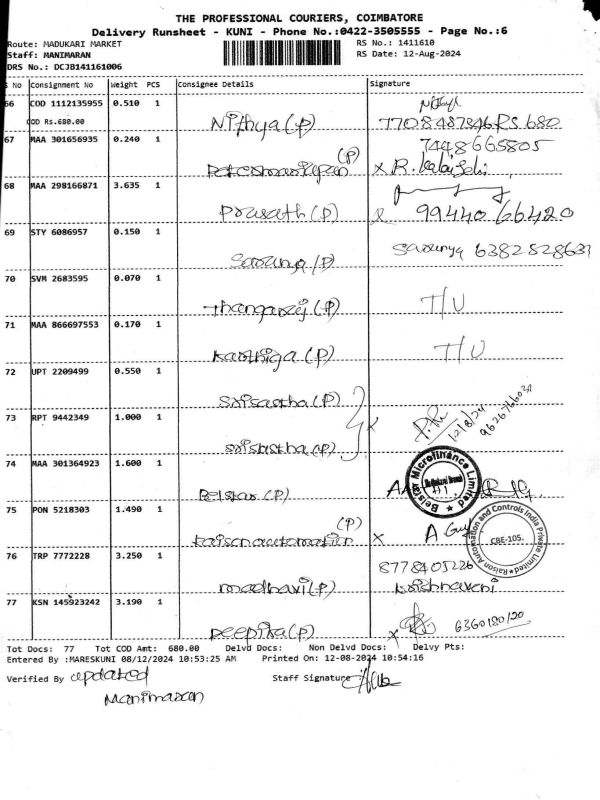 THE PROFESSIONAL COURIERS, COIMBATORE
Delivery Runsheet - KUNI - Phone No.:0422-3505555 - Page No.:6
Route: MADUKARI MARKET
RS No.: 1411610
Staff: MANIMARAN
RS Date: 12-Aug-2024
DRS No.: DCJB141161006
S No Consignment No Weight PCS Consignee Details Signature
66 COD 1112135955 0.510 1
COD Rs.680.00 Nithya (P) 7708487846 RS.680
67 MAA 301656935 0.240 1 7448665805
(P) x R.
68 MAA 298166871 3.635 1
Prasath (P) 99440 66420
69 STY 6086957 0.150 1 Saranya 6382828631
Saranya (P)
70 SVM 2683595 0.070 1 T/U
Thangaraj (P)
71 MAA 866697553 0.170 1 T/U
Karthiga (P)
72 UPT 2209499 0.550 1
(P)
73 RPT 9442349 1.000 1 12/8/24
(P)
74 MAA 301364923 1.600 1 Belstar Microfinance Limited
Belstar (P)
75 PON 5218303 1.490 1 Raison Automation and Controls India Private Limited
(P) CBE-105.
x
76 TRP 7772228 3.250 1 8778405226
madhavi (P) Krishnaveni
77 KSN 145923242 3.190 1
Deepika (P) x 6360180120
Tot Docs: 77 Tot COD Amt: 680.00 Delvd Docs: Non Delvd Docs: Delvy Pts:
Entered By :MARESKUNI 08/12/2024 10:53:25 AM Printed On: 12-08-2024 10:54:16
Verified By updated Staff Signature
Manimaran